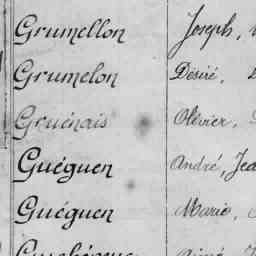 Grumellon Joseph,
Grumelon Désiré,
Gruénais Olivier,
Guéguen André, Jea
Guéguen Marie,
Aimé,